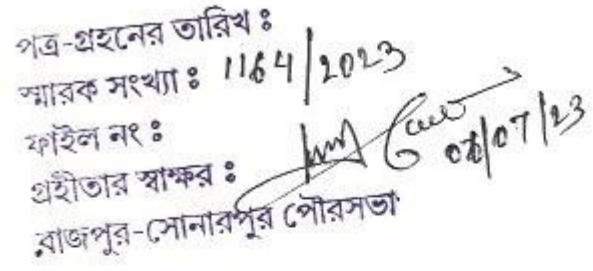 পত্র-গ্রহনের তারিখ ঃ
স্মারক সংখ্যা ঃ 1164/2023
ফাইল নং ঃ
গ্রহীতার স্বাক্ষর ঃ
রাজপুর-সোনারপুর পৌরসভা